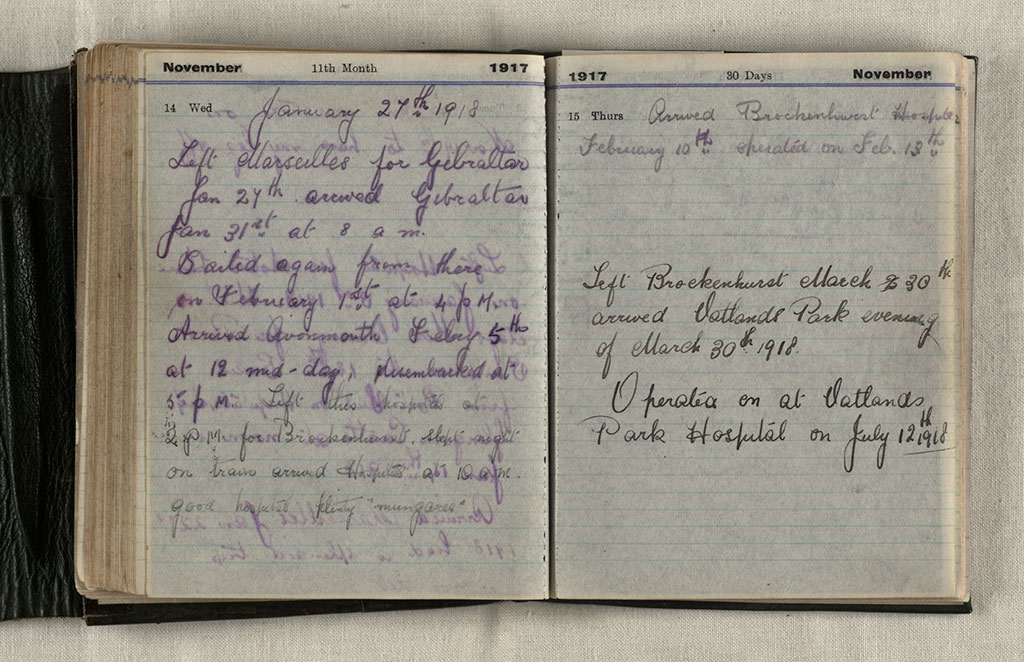 November 11th Month 1917
14 Wed January 27th 1918
Left Marseilles for Gibraltar
Jan 27th arrived Gibraltar
Jan 31st at 8 a m.
Sailed again from there
on February 1st at 4 p M.
Arrived Avonmouth Febry 5th
at 12 mid-day, disembarked at
5 p M. Left this hospital at
2 p M. for Brockenhurst. slept night
on train arrived Hospital at 10 a m.
good hospital plenty "mungaree"
1917 30 Days November
15 Thurs Arrived Brockenhurst Hospital
February 10th operated on Feb. 13th
Left Brockenhurst March 30th
arrived Oatlands Park evening
of March 30th 1918.
Operated on at Oatlands
Park Hospital on July 12th 1918